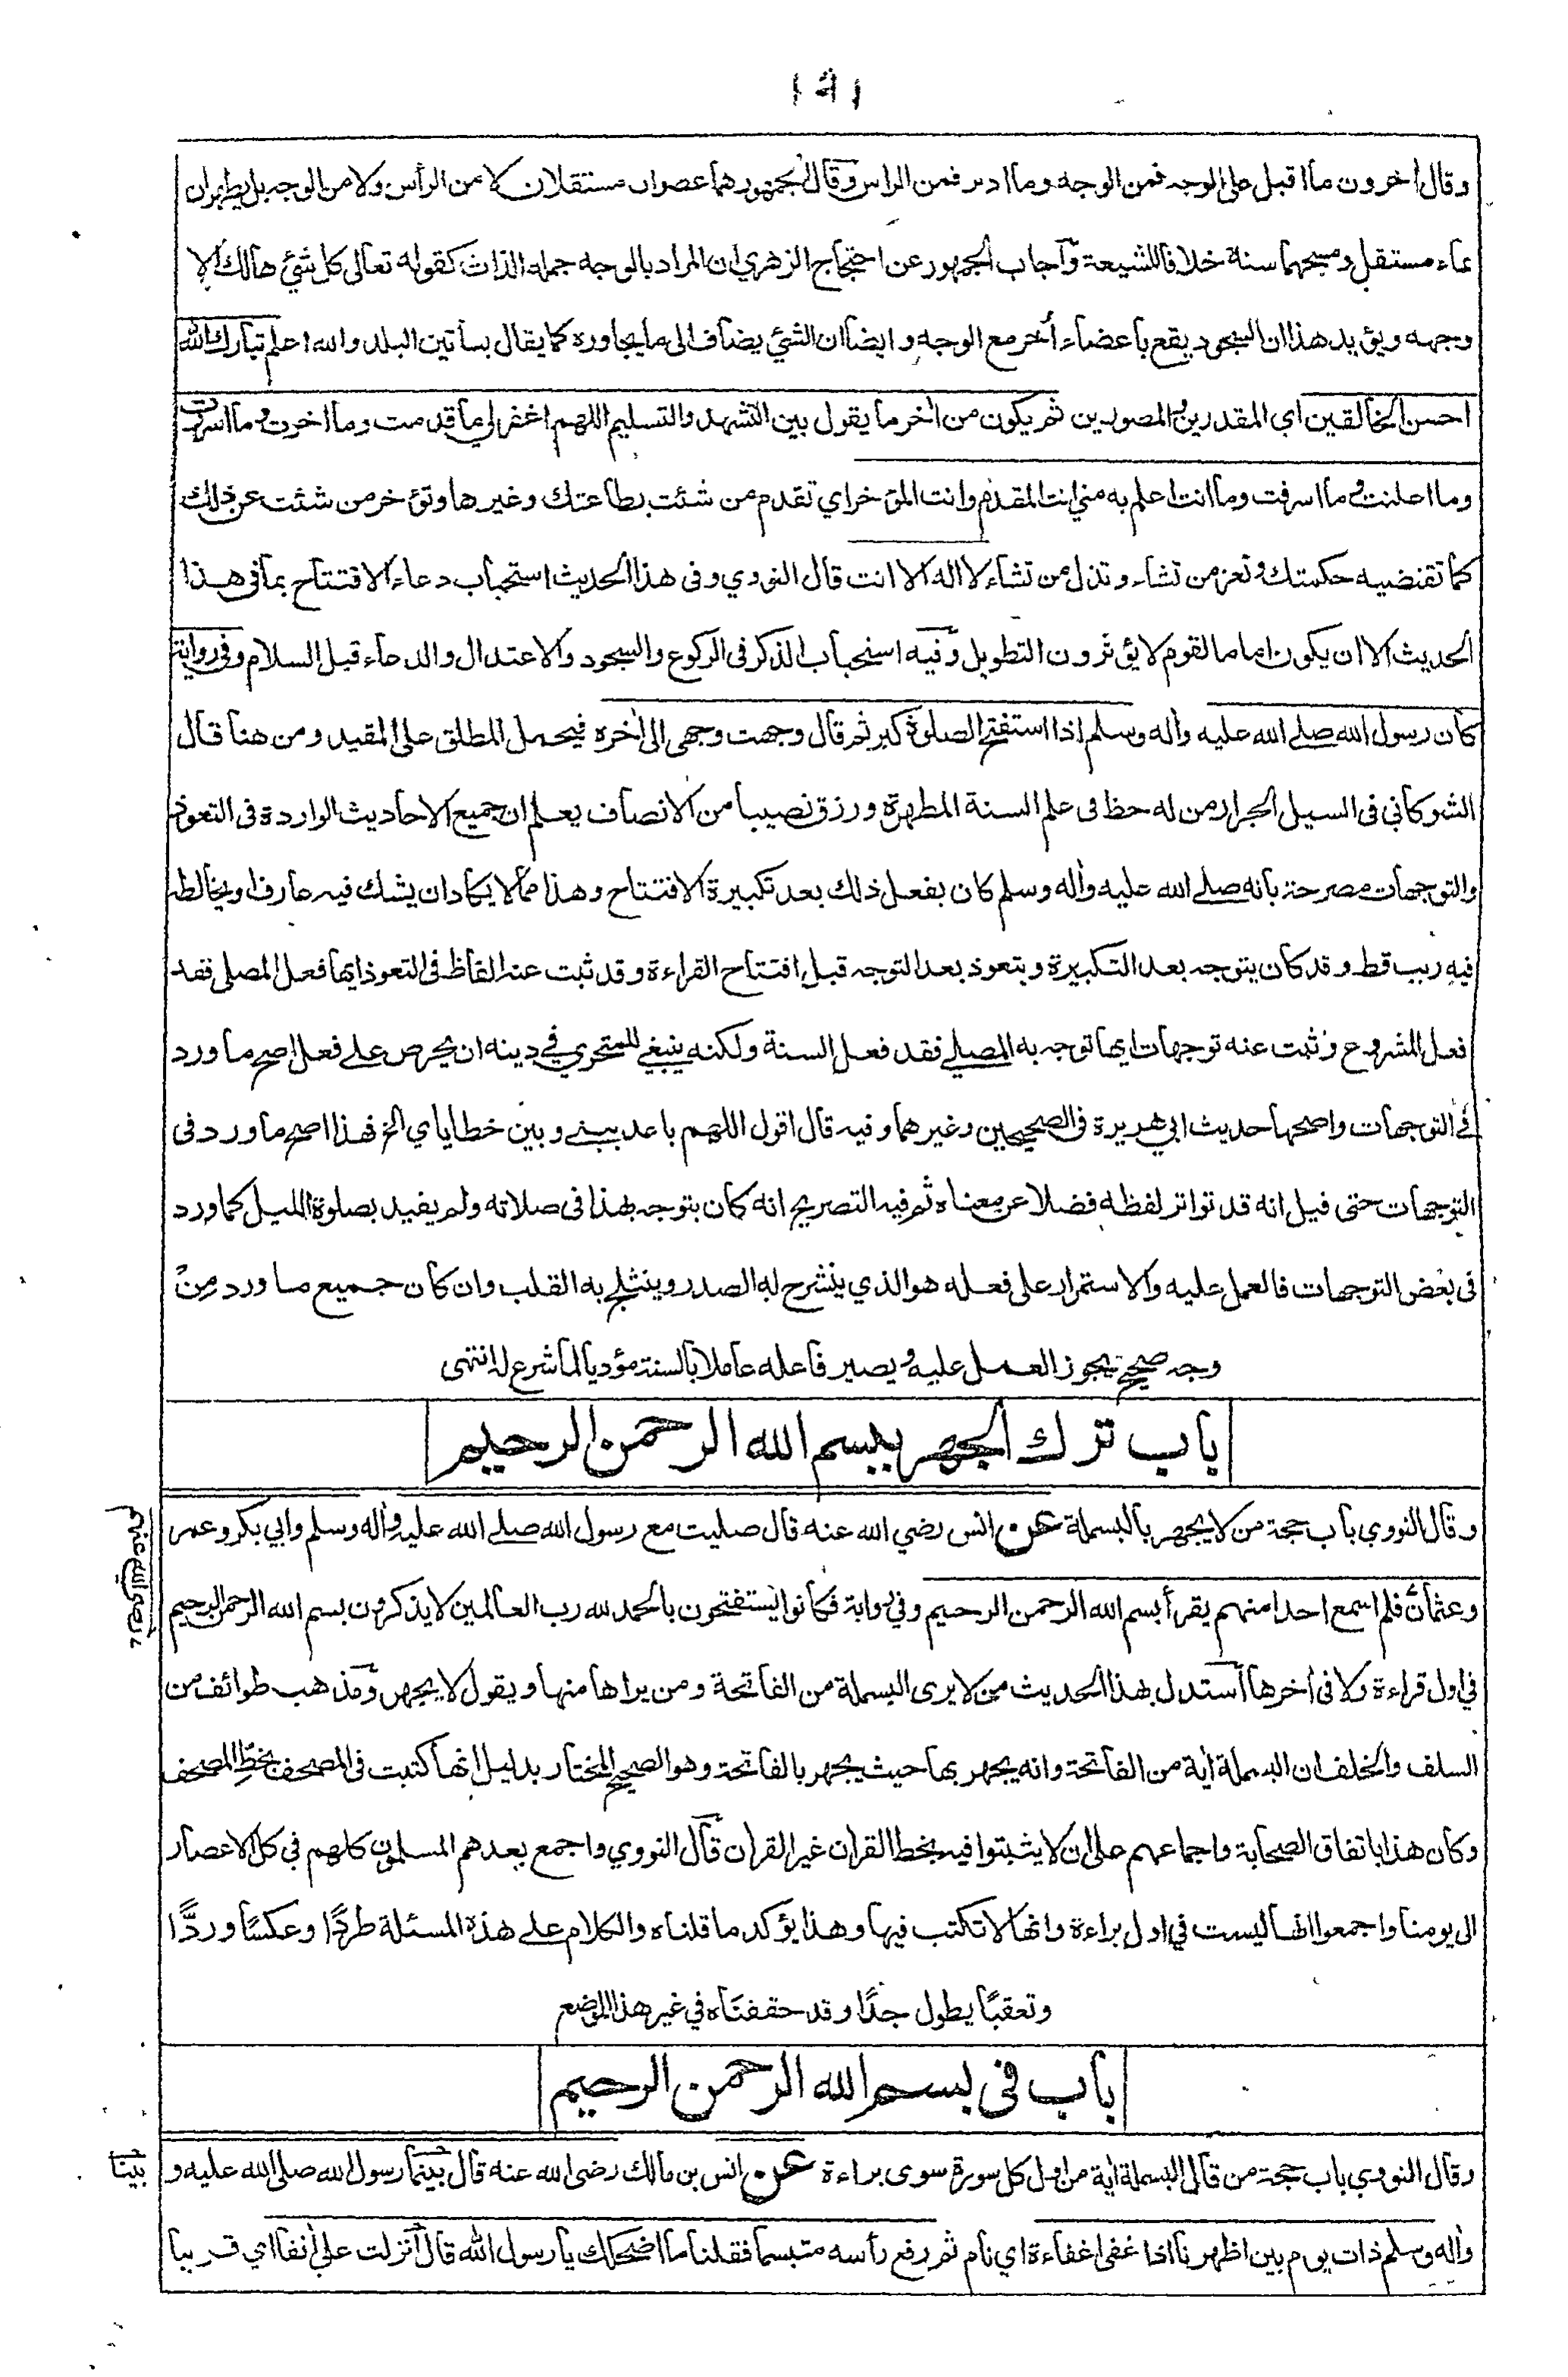 ١٩١
وقال اخرون ما اقبل على الوجه فمن الوجه وما ادبر فمن الراس وقال الجمهور هما عضوان مستقلان لا من الرأس ولا من الوجه بل يطهران
بماء مستقل ومسحهما سنة خلافا للشيعة وآجاب الجمهور عن احتجاج الزهري ان المراد بالوجه جملة الذات كقوله تعالى كل شئ هالك إلا
وجهه ويؤيد هذا ان السجود يقع بأعضاء أخر مع الوجه وايضا ان الشئ يضاف الى ما يجاوره كما يقال بساتين البلد والله اعلم تبارك الله
احسن الخالقين اي المقدرين والمصورين ثم يكون من اٰخر ما يقول بين التشهد والتسليم اللهم اغفر لي ما قدمت وما اخرت وما اسررت
وما اعلنت وما اسرفت وما انت اعلم به مني انت المقدم وانت المؤخر اي تقدم من شئت بطاعتك وغيرها وتؤخر من شئت عن ذلك
كما تقتضيه حكمتك وتعز من تشاء وتذل من تشاء لا اله الا انت قال النووي وفى هذا الحديث استحباب دعاء الافتتاح بما فى هذا
الحديث الا ان يكون اماما لقوم لا يؤثرون التطويل وفيه استحباب الذكر فى الركوع والسجود والاعتدال والدعاء قبل السلام وفى رواية
كان رسول الله صلى الله عليه واٰله وسلم اذا استفتح الصلوة كبر ثم قال وجهت وجهى الى اٰخره فيحمل المطلق على المقيد ومن هنا قال
الشوكاني فى السيل الجرار من له حظ فى علم السنة المطهرة ورزق نصيبا من الانصاف يعلم ان جميع الاحاديث الواردة فى التعوذ
والتوجهات مصرحة بانه صلى الله عليه واٰله وسلم كان يفعل ذلك بعد تكبيرة الافتتاح وهذا مما لا يكاد ان يشك فيه عارف او يخالطه
فيه ريب قط وقد كان يتوجه بعد التكبيرة ويتعوذ بعد التوجه قبل افتتاح القراءة وقد ثبت عنه الفاظ فى التعوذ ايها فعل المصلى فقد
فعل المشروع وثبت عنه توجهات ايها توجه به المصلى فقد فعل السنة ولكنه ينبغي للمتحري في دينه ان يحرص على فعل اصح ما ورد
فى التوجهات واصحها حديث ابي هريرة فى الصحيحين وغيرهما وفيه قال اقول اللهم باعد بيني وبين خطاياي الخ فهذا اصح ما ورد فى
التوجهات حتى قيل انه قد تواتر لفظه فضلا عن معناه ثم فيه التصريح انه كان يتوجه بهذا فى صلاته ولم يقيد بصلوة الليل كما ورد
فى بعض التوجهات فالعمل عليه والاستمرار على فعله هو الذي ينشرح له الصدر وينثلج به القلب وان كان جميع ما ورد مِنْ
وجه صحيح يجوز العمل عليه ويصير فاعله عاملا بالسنة مؤديا لما شرع له انتهى
باب ترك الجهر ببسم الله الرحمن الرحيم
وقال النووي باب حجة من لا يجهر بالبسملة عن انس رضي الله عنه قال صليت مع رسول الله صلى الله عليه واٰله وسلم وابي بكر وعمر
وعثمان فلم اسمع احدا منهم يقرأ بسم الله الرحمن الرحيم وفي رواية فكانوا يستفتحون بالحمد لله رب العالمين لا يذكرون بسم الله الرحمن الرحيم
في اول قراءة ولا فى اٰخرها آستدل بهذا الحديث من لا يرى البسملة من الفاتحة ومن يراها منها ويقول لا يجهر ومذهب طوائف من
السلف والخلف ان البسملة اٰية من الفاتحة وانه يجهر بها حيث يجهر بالفاتحة وهو الصحيح المختار بدليل انها كتبت فى المصحف بخطّ المصحف
وكان هذا باتفاق الصحابة واجماعهم على ان لا يثبتوا فيه بخط القراٰن غير القراٰن قال النووي واجمع بعدهم المسلمون كلهم في كل الاعصار
الى يومنا واجمعوا انها ليست في اول براءة وانها لا تكتب فيها وهذا يؤكد ما قلناه والكلام على هذه المسئلة طردًا وعكسًا وردًّا
وتعقبًا يطول جدًا وقد حققنَاه في غير هذا الموضع
باب فى بسم الله الرحمن الرحيم
وقال النووي باب حجة من قال البسملة اٰية من اول كل سورة سوى براءة عن انس بن مالك رضى الله عنه قال بينما رسول الله صلى الله عليه و
بينا
واٰله وسلم ذات يوم بين اظهرنا اذا غفى اغفاءة اي نام ثم رفع رأسه متبسما فقلنا ما اضحكك يا رسول الله قال أنزلت علي اٰنفا اي قريبا